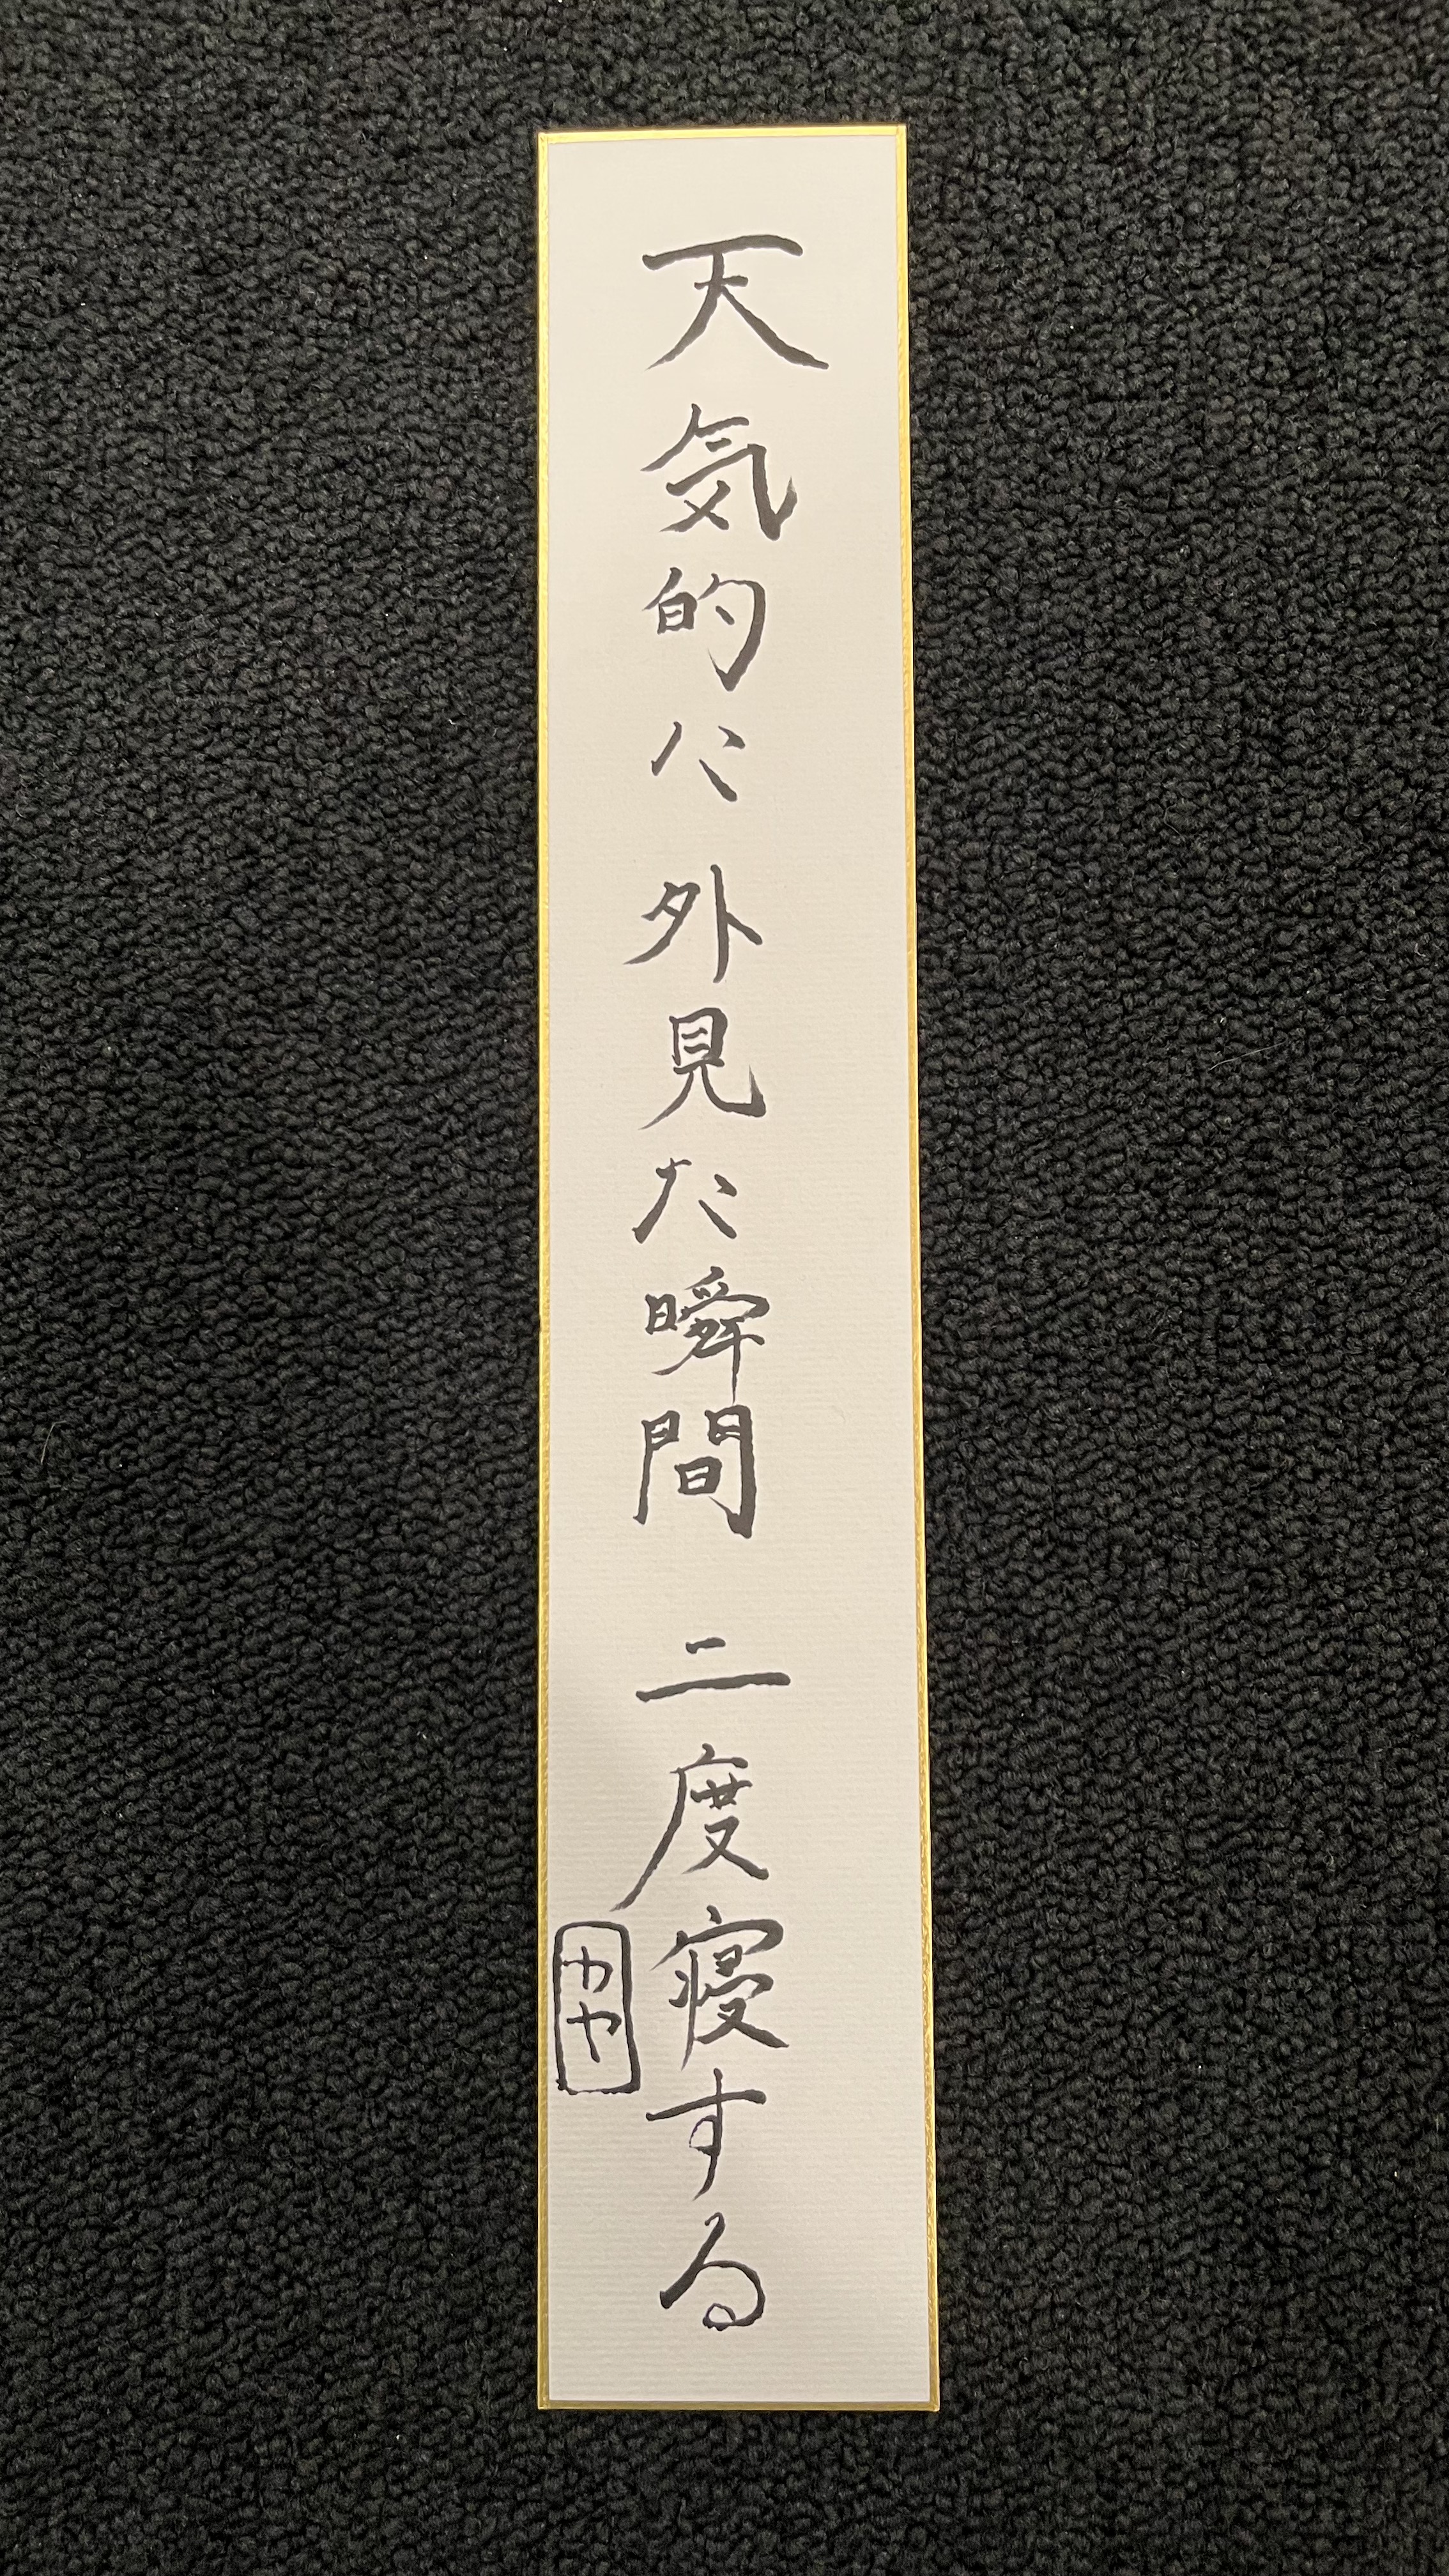 天気的に外見た瞬間 二度寝する
カヤ